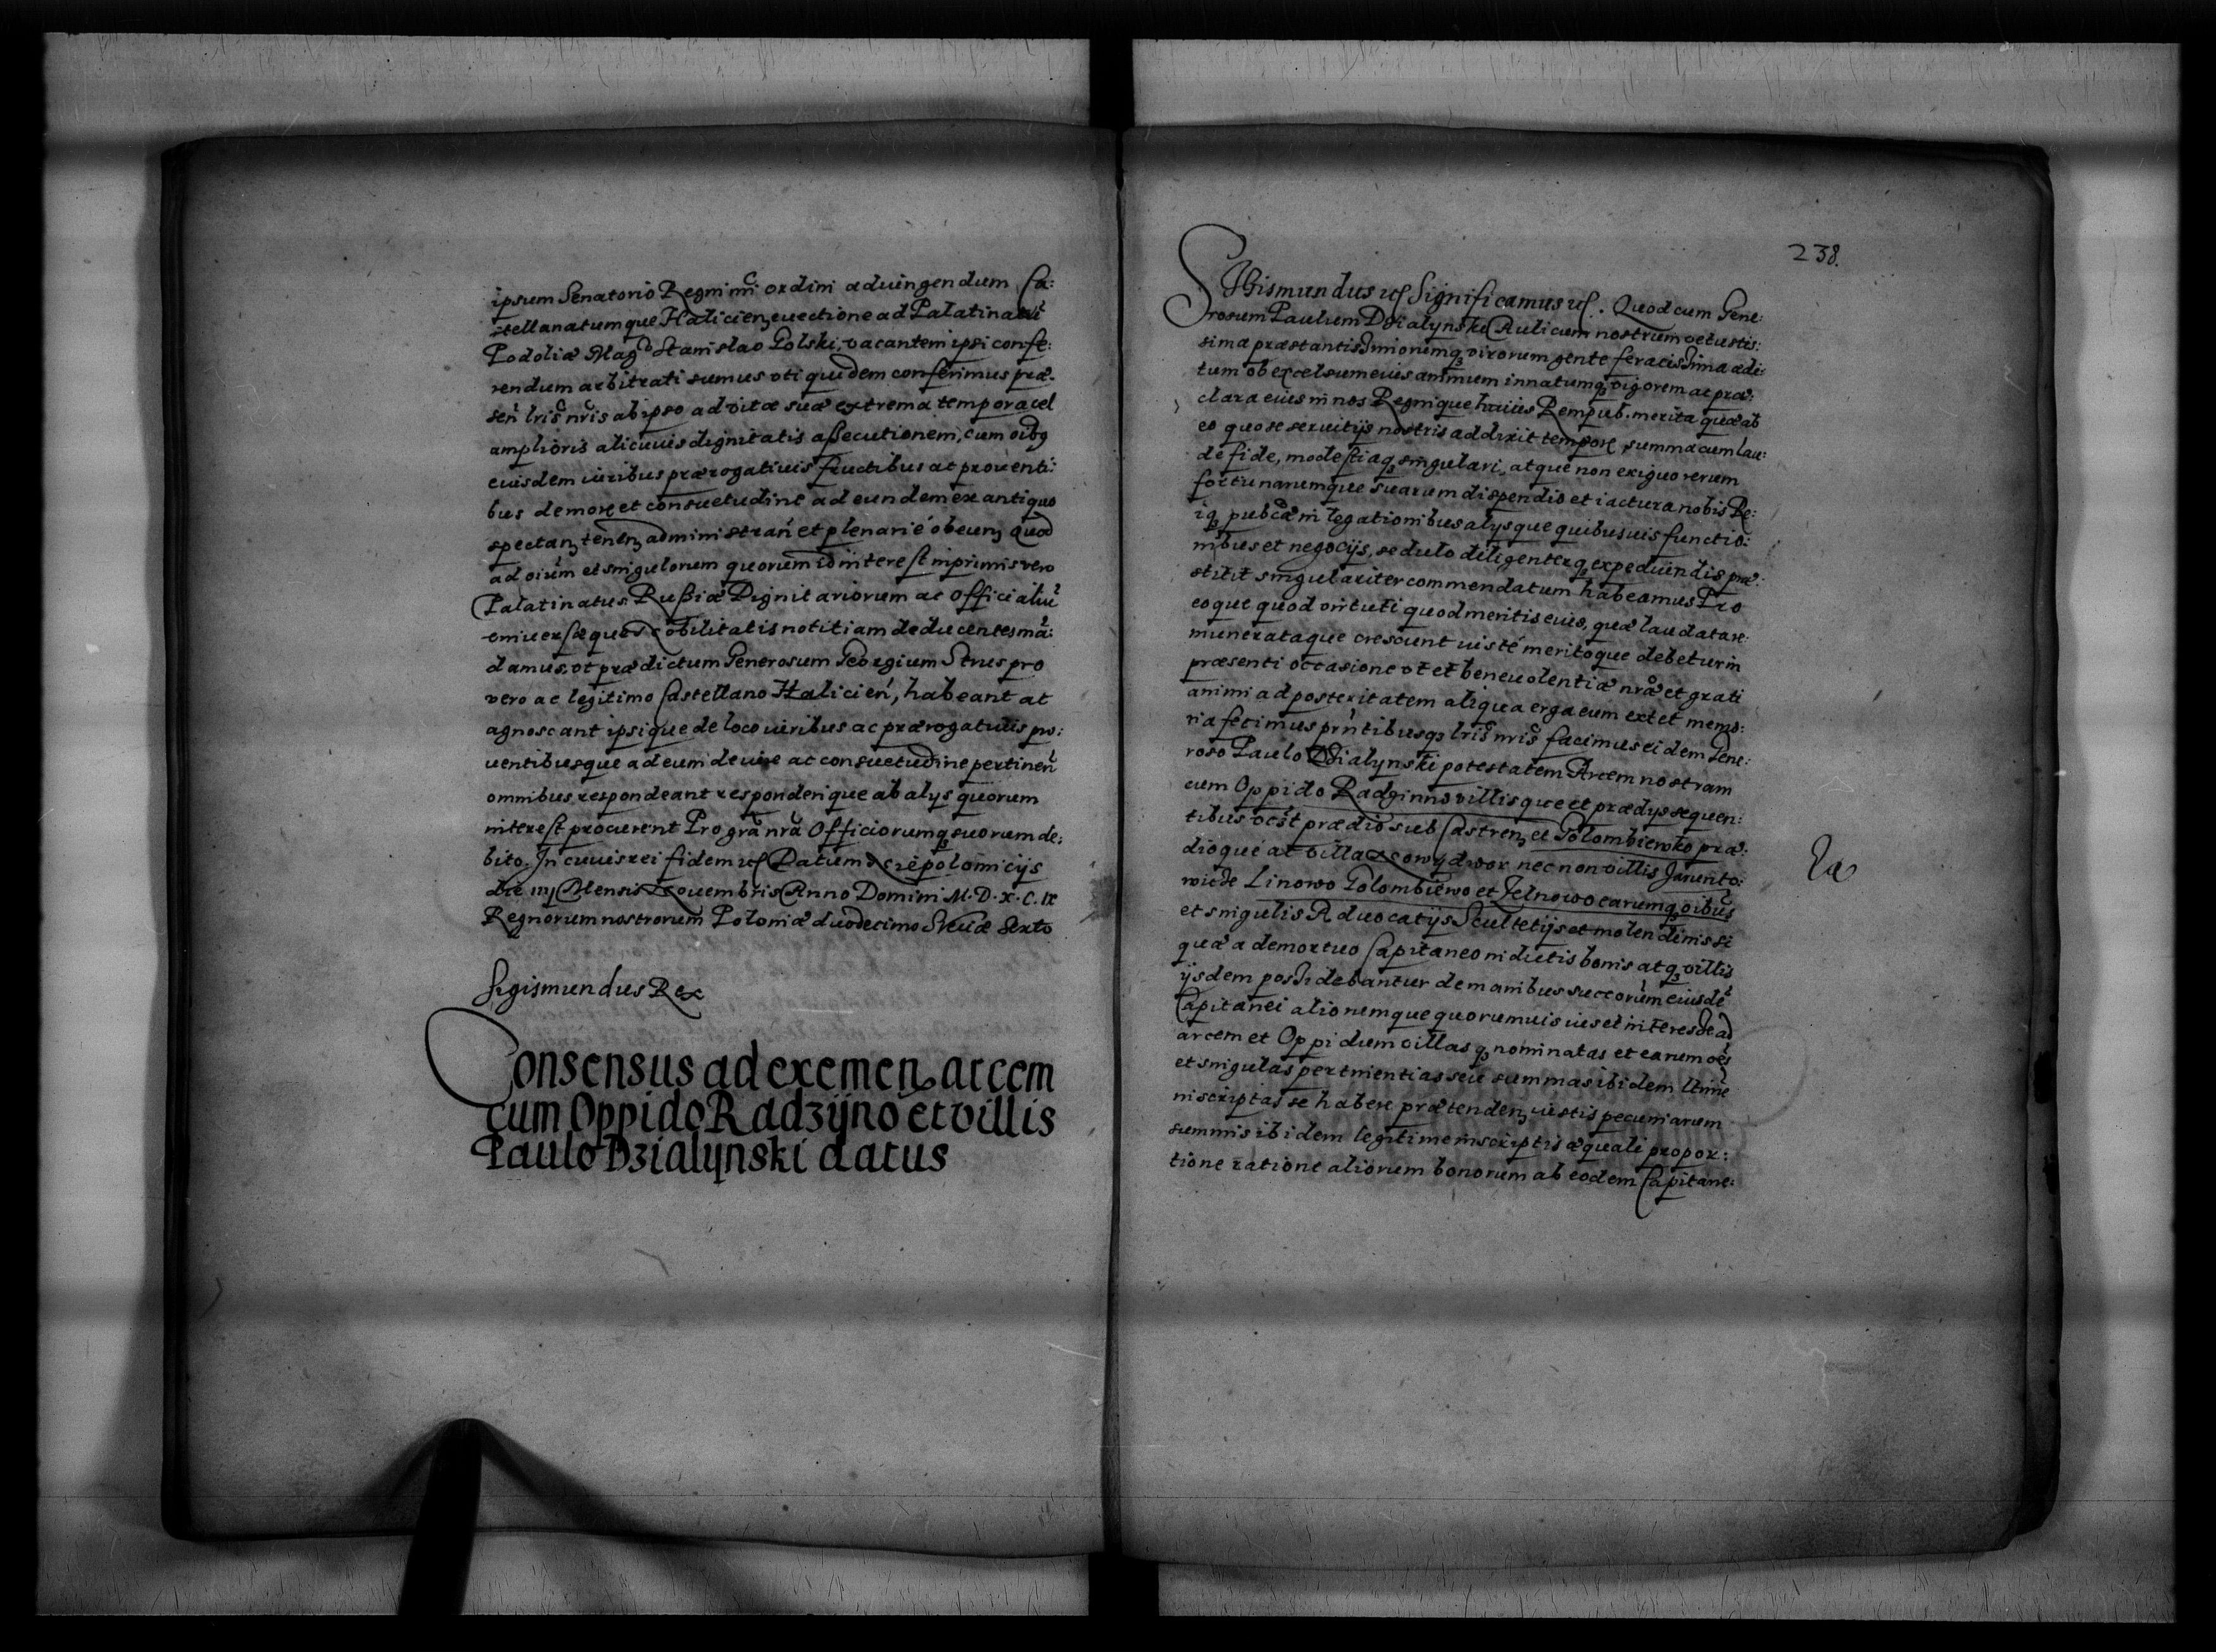 ipsum Senatorio Regni nri ordini adiungendum Ca:
stellanatumque Haliciens euectione ad Palatinatũ
Podoliæ Mag: Stanislao Golski, vacantem ipsi confe:
rendum arbitrati sumus vti quidem conferimus præ:
sen lris nris ab ipso ad vitæ suæ extrema tempora vel
amplioris alicuius dignitatis assecutionem, cum oibq
euisdem iuribus prærogatiuis fructibus ac prouenti:
bus de more et consuetudine ad eundem ex antiquo
spectanʒ tenenʒ administran et plenarié obeunʒ Quod
ad oium et singulorum quorum id interest inprimis vero
Palatinatus Russiæ Dignitariorum ac Officialiũ
vniuersæque Nobilitatis notitiam deducentes mã:
damus, vt prædictum Generosum Georgium Strus pro
vero ac legitimo Castellano Halicien, habeant ac
agnoscant ipsique de loco iuribus ac prærogatiuis pro:
uentibusque ad eum de iure ac consuetudine pertinen
omnibus respondeant responderique ab alys quorum
interest procurent Pro gra nra Officiorumqʒ suorum de:
bito. In cuius rei fidem etc Datum Niepolomicijs
die iiij Mensis Nouembris Anno Domini M.D.X.C.IX
Regnorum nostrorum Poloniæ duodecimo Sueciæ Sexto
Sigismundus Rex
Consensus ad eximenʒ arcem
cum Oppido Radzijno et villis
Paulo Dzialynski datus
238.
Sigismundus etc Significamus etc. Quod cum Gene:
rosum Paulum Dzialynski Aulicum nostrum vetustis:
sima præstantissimorumqʒ virorum gente feracissima edi:
tum ob excelsum eius animum innatumqʒ vigorem ac præ:
clara eius in nos Regnique huius Rempub. merita quæ ab
eo quo se seruitijs nostris addixit tempore summa cum lau:
de fide, modestiaqʒ singulari, atque non exiguo rerum
fortunarumque suarum dispendio et iactura nobis Re:
iqʒ pubcæ in legationibus alysque quibusuis functio:
nibus et negocijs, sedulo diligenterqʒ expediundis præ:
stitit singulariter commendatum habeamus Pro
eoque quod virtuti quod meritis eius, quæ laudata re:
munerataque crescunt iusté meritoque debetur in
præsenti occasione vt et beneuolentiæ nræ et grati
animi ad posteritatem aliqua erga eum extet memo:
ria fecimus prntibusqʒ lris nris facimus eidem Gene:
roso Paulo Dzialynski potestatem Arcem nostram
cum Oppido Radzinno villisque et prædys sequen:
tibus vcst prædio sub Castrenʒ et Golombiewko præ:
dioque ac villa Nowydwor nec non villis Janento:
wicze Linowo Golombiewo et Zelnowo earumqʒ oibus
et singulis Aduocatijs Scultetijs et molendinis si
quæ a demortuo Capitaneo in dictis bonis atqʒ villis
ijsdem possidebantur de manibus succorum eiusdẽ
Capitanei aliorumque quorumuis ius et interesse ad
arcem et Oppidum villasqʒ nominatas et earum oẽs
et singulas pertinentias seu summas ibidem ltime
inscriptas se habere prætendenʒ iustis pecuniarum
summis ibidem legitime inscriptis æquali propor:
tione ratione aliorum bonorum ab eodem Capitane: